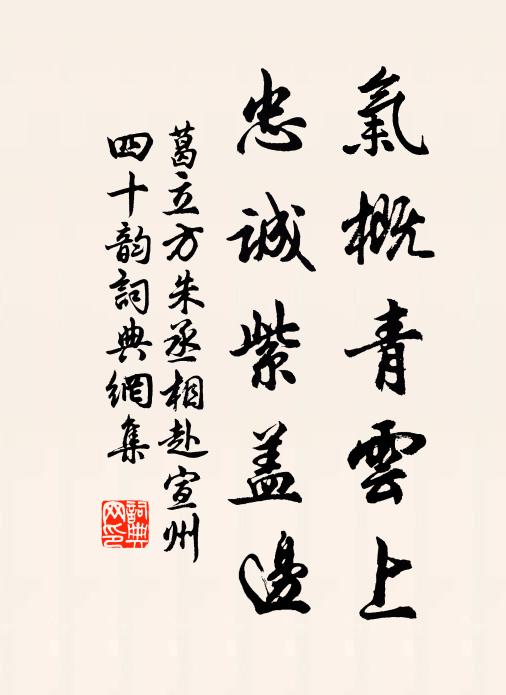 氣概青雲上
忠誠紫盖邊
葛立方朱丞相赴宣州
四十韵詞典網集
詞典網印